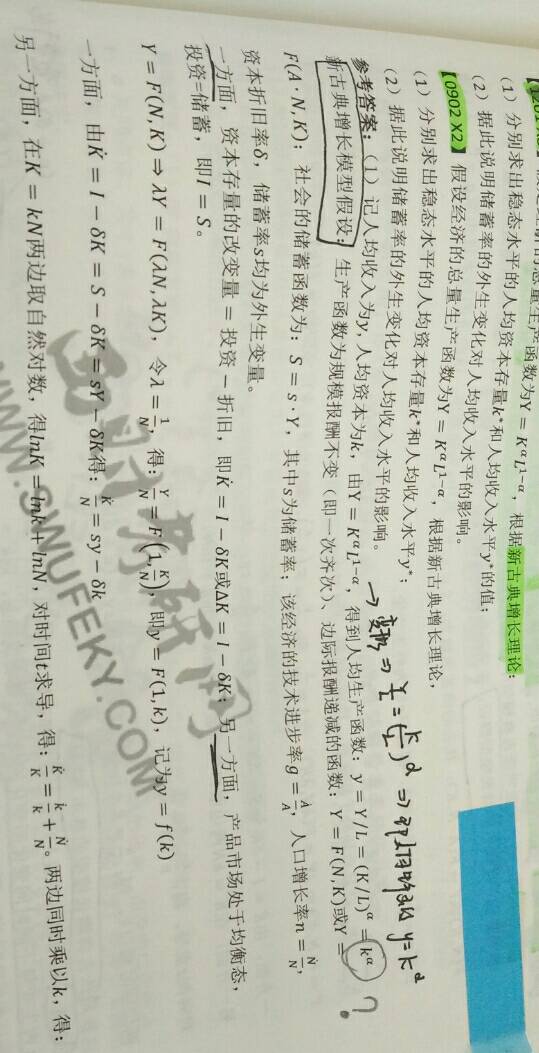 假设经济的总量生产函数为Y = K^αL^{1−α}，根据新古典增长理论：
（1）分别求出稳态水平的人均资本存量k*和人均收入水平y*的值；
（2）据此说明储蓄率的外生变化对人均收入水平的影响。
【0902 X2】假设经济的总量生产函数为Y = K^αL^{1−α}，根据新古典增长理论，
（1）分别求出稳态水平的人均资本存量k*和人均收入水平y*；
（2）据此说明储蓄率的外生变化对人均收入水平的影响。
→变形⇒ Y/L = (K/L)^α ⇒ y=k^α
参考答案：（1）记人均收入为y，人均资本为k，由Y = K^αL^{1−α}，得到人均生产函数：y = Y/L = (K/L)^α = k^α ?
新古典增长模型假设：生产函数为规模报酬不变（即一次齐次）、边际报酬递减的函数：Y = F(N,K)或Y =
F(A · N,K)；社会的储蓄函数为：S = s · Y，其中s为储蓄率；该经济的技术进步率g = Ȧ/A，人口增长率n = Ṅ/N，
资本折旧率δ，储蓄率s均为外生变量。
一方面，资本存量的改变量 = 投资 − 折旧，即K̇ = I − δK或ΔK = I − δK；另一方面，产品市场处于均衡态，
投资=储蓄，即I = S。
Y = F(N,K) ⇒ λY = F(λN,λK)，令λ = 1/N，得：Y/N = F(1,K/N)，即y = F(1,k)，记为y = f(k)
一方面，由K̇ = I − δK = S − δK = sY − δK得：K̇/N = sy − δk
另一方面，在K = kN两边取自然对数，得lnK = lnk + lnN，对时间t求导，得：K̇/K = k̇/k + Ṅ/N。两边同时乘以k，得：
西财考研网
WWW.SWUFEKY.COM